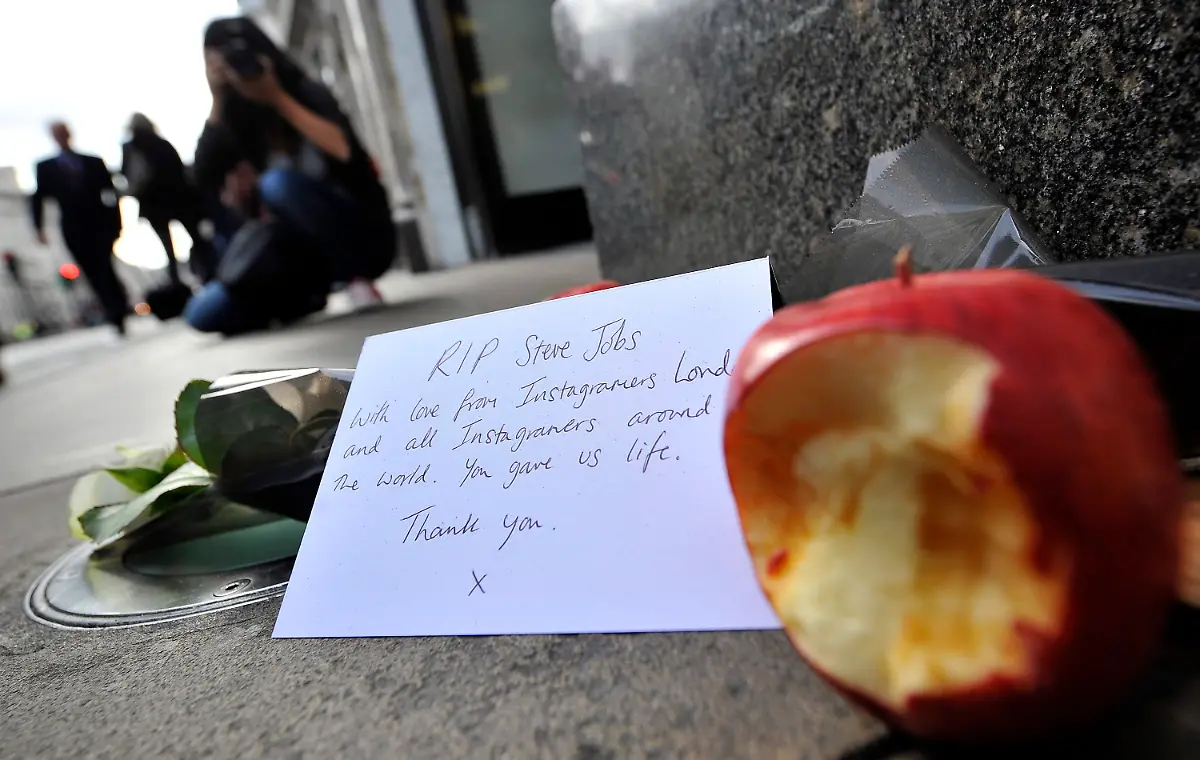 RIP Steve Jobs
With love from Instagramers Lond
and all Instagramers around
the world. You gave us life.
Thank you.
X